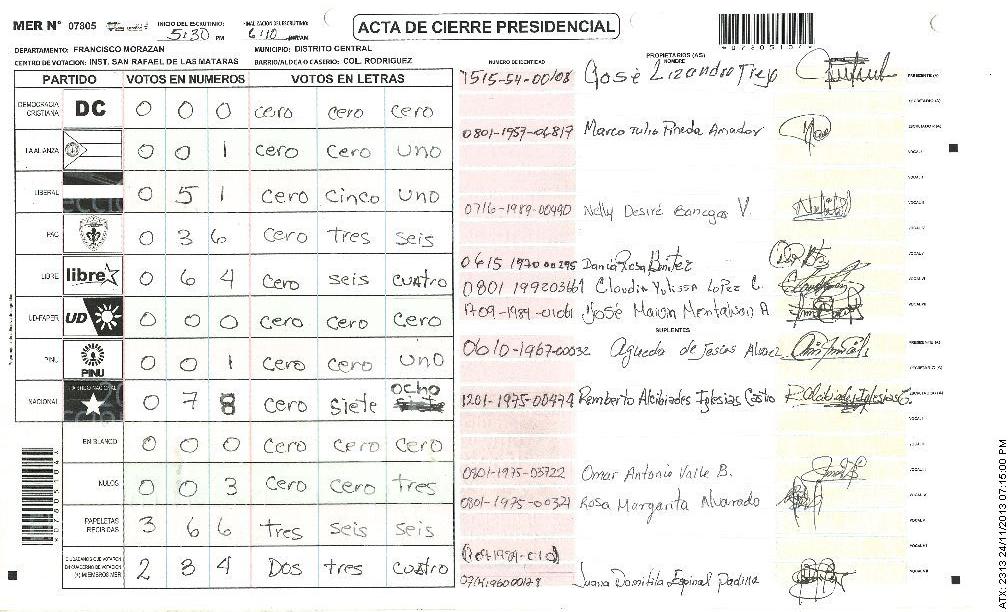 MER N° 07805 INICIO DEL ESCRUTINIO: 5:30 PM FINALIZACION DEL ESCRUTINIO: 6:10
ACTA DE CIERRE PRESIDENCIAL
DEPARTAMENTO: FRANCISCO MORAZAN MUNICIPIO: DISTRITO CENTRAL
CENTRO DE VOTACION: INST. SAN RAFAEL DE LAS MATARAS BARRIO/ALDEA O CASERIO: COL. RODRIGUEZ
PARTIDO VOTOS EN NUMEROS VOTOS EN LETRAS
DEMOCRACIA CRISTIANA DC 0 0 0 cero cero cero
LA ALIANZA 0 0 1 cero cero uno
LIBERAL 0 5 1 cero cinco uno
PAC 0 3 6 cero tres seis
LIBRE libre 0 6 4 cero seis cuatro
UD-FAPER UD 0 0 0 cero cero cero
PINU PINU 0 0 1 cero cero uno
NACIONAL PARTIDO NACIONAL 0 7 8 cero siete ocho
EN BLANCO 0 0 0 cero cero cero
NULOS 0 0 3 cero cero tres
PAPELETAS RECIBIDAS 3 6 6 tres seis seis
CIUDADANOS QUE VOTARON EN CUADERNO DE VOTACION (+) MIEMBROS MER 2 3 4 Dos tres cuatro
NUMERO DE IDENTIDAD PROPIETARIOS (AS) NOMBRE
1515-54-00108 José Lizandro PRESIDENTE (A)
SECRETARIO (A)
0801-1957-06817 Marco Tulio Pineda Amador ESCRUTADOR (A)
VOCAL I
VOCAL II
0716-1989-00490 Nelly Desiré Banegas V
0615 1970 00295 Dania Rosa Benitez
0801 199203661 Claudia Yulissa Lopez C.
1709-1989-01061 José Marvin Montalvan A
SUPLENTES
0610-1967-00032 Agueda de Jesus Alvarez PRESIDENTE (A)
SECRETARIO (A)
1201-1975-00474 Remberto Alcibiades Iglesias Castro
0801-1975-03722 Omar Antonio Valle B.
0801-1975-00321 Rosa Margarita Alvarado
Juana Domitila Espinal Padilla
ATX 2313 24/11/2013 07:15:00 PM